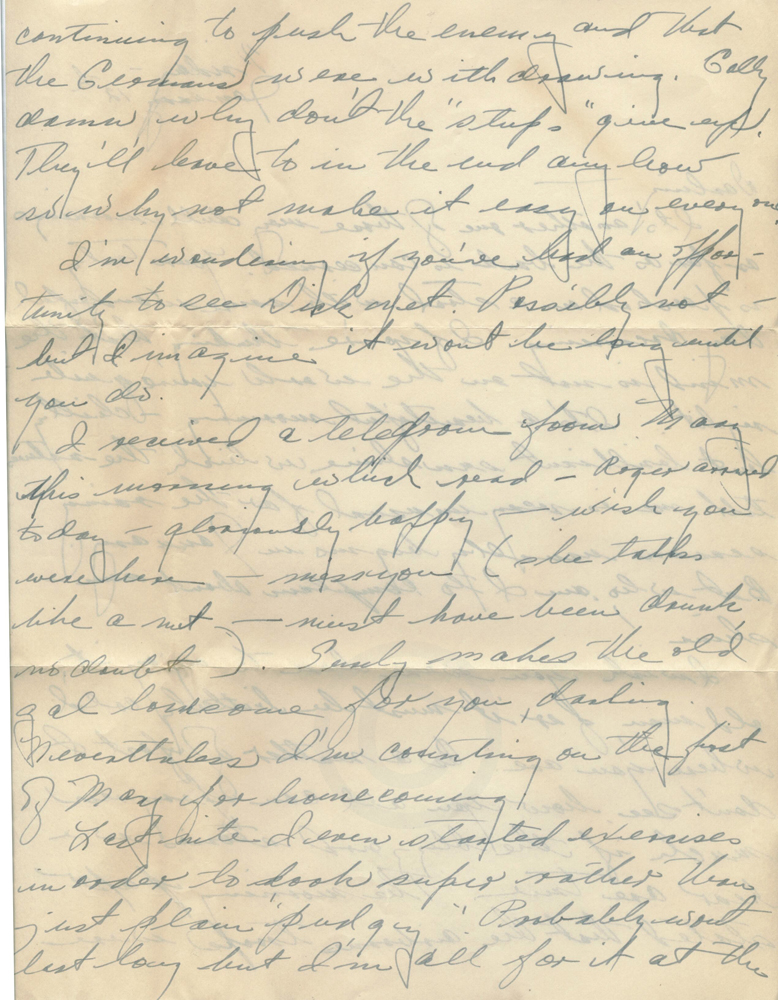 continuing to push the enemy and that
the Germans were withdrawing. Golly
damn why don't the "stups" give up!
They'll have to in the end anyhow
so why not make it easy on everyone.
I'm wondering if you've had an oppor-
tunity to see Dick yet. Possibly not -
but I imagine it wont be long until
you do.
I received a telegram from Mary
this morning which read - Roger arrived
today - gloriously happy - wish you
were here - miss you (she talks
like a nut - must have been drunk,
no doubt). Surely makes the old
gal lonesome for you, darling.
Nevertheless I'm counting on the first
of May for homecoming!
Last nite I even started exercises
in order to look super rather than
just plain "pudgy". Probably wont
last long but I'm all for it at the